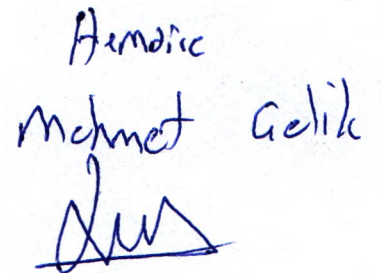 Hemşire
Mehmet Gelik